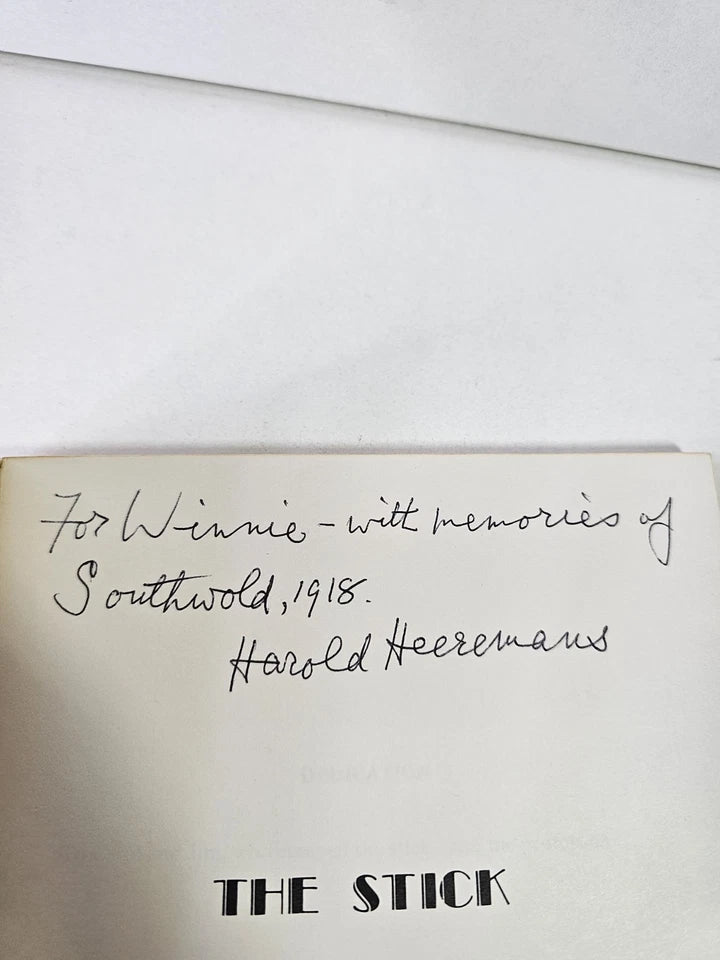 For Winnie – with memories of
Southwold, 1918.
Harold Heeremans
THE STICK